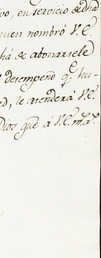 vo, en servicio de dha
uien nombró V.E.
há de abonarsele
desempeño q.e hu-
rd, le atenderá V.E.
Dios que á V.E. m.s a.s